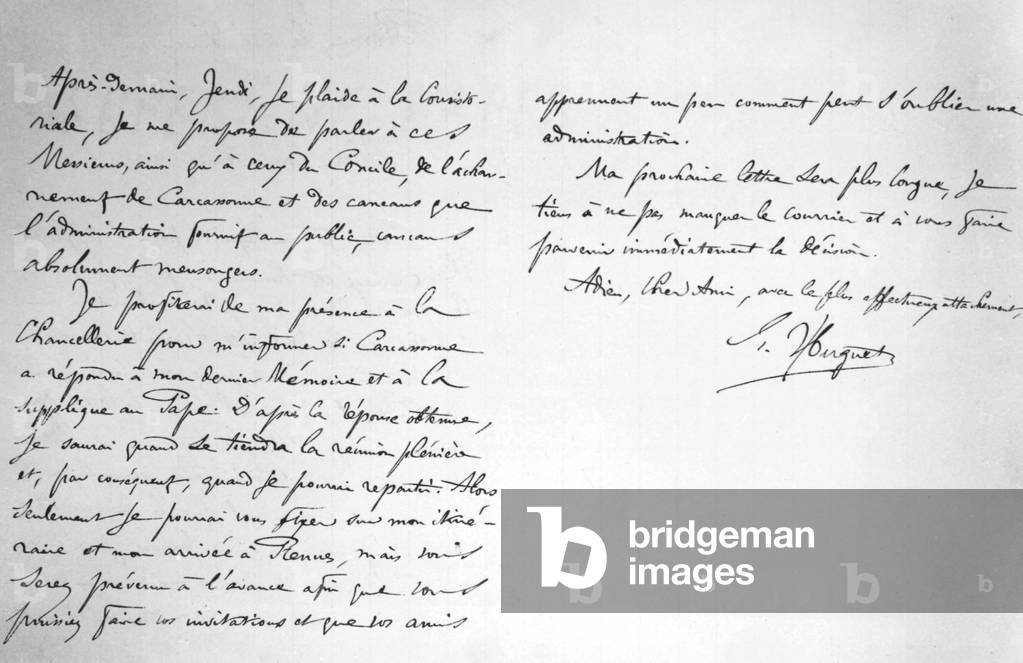 Après-demain, Jeudi, je plaide à la Consisto-
riale, je me propose de parler à ces
Messieurs, ainsi qu'à ceux du Concile, de l'achar-
nement de Carcassonne et des cancans que
l'administration fournit au public, cancans
absolument mensongers.
Je profiterai de ma présence à la
Chancellerie pour m'informer si Carcassonne
a répondu à mon dernier Mémoire et à la
supplique au Pape: D'après la réponse obtenue,
je saurai quand se tiendra la réunion plénière
et, par conséquent, quand je pourrai repartir. Alors
seulement je pourrai vous fixer sur mon itiné-
raire et mon arrivée à Rennes, mais vous
serez prévenu à l'avance afin que vous
puissiez faire vos invitations et que vos amis
apprennent un peu comment peut s'oublier une
administration.
Ma prochaine lettre sera plus longue, je
tiens à ne pas manquer le courrier et à vous faire
parvenir immédiatement la décision.
Adieu, cher Ami, avec le plus affectueux attachement,
Huguet
bridgeman
images